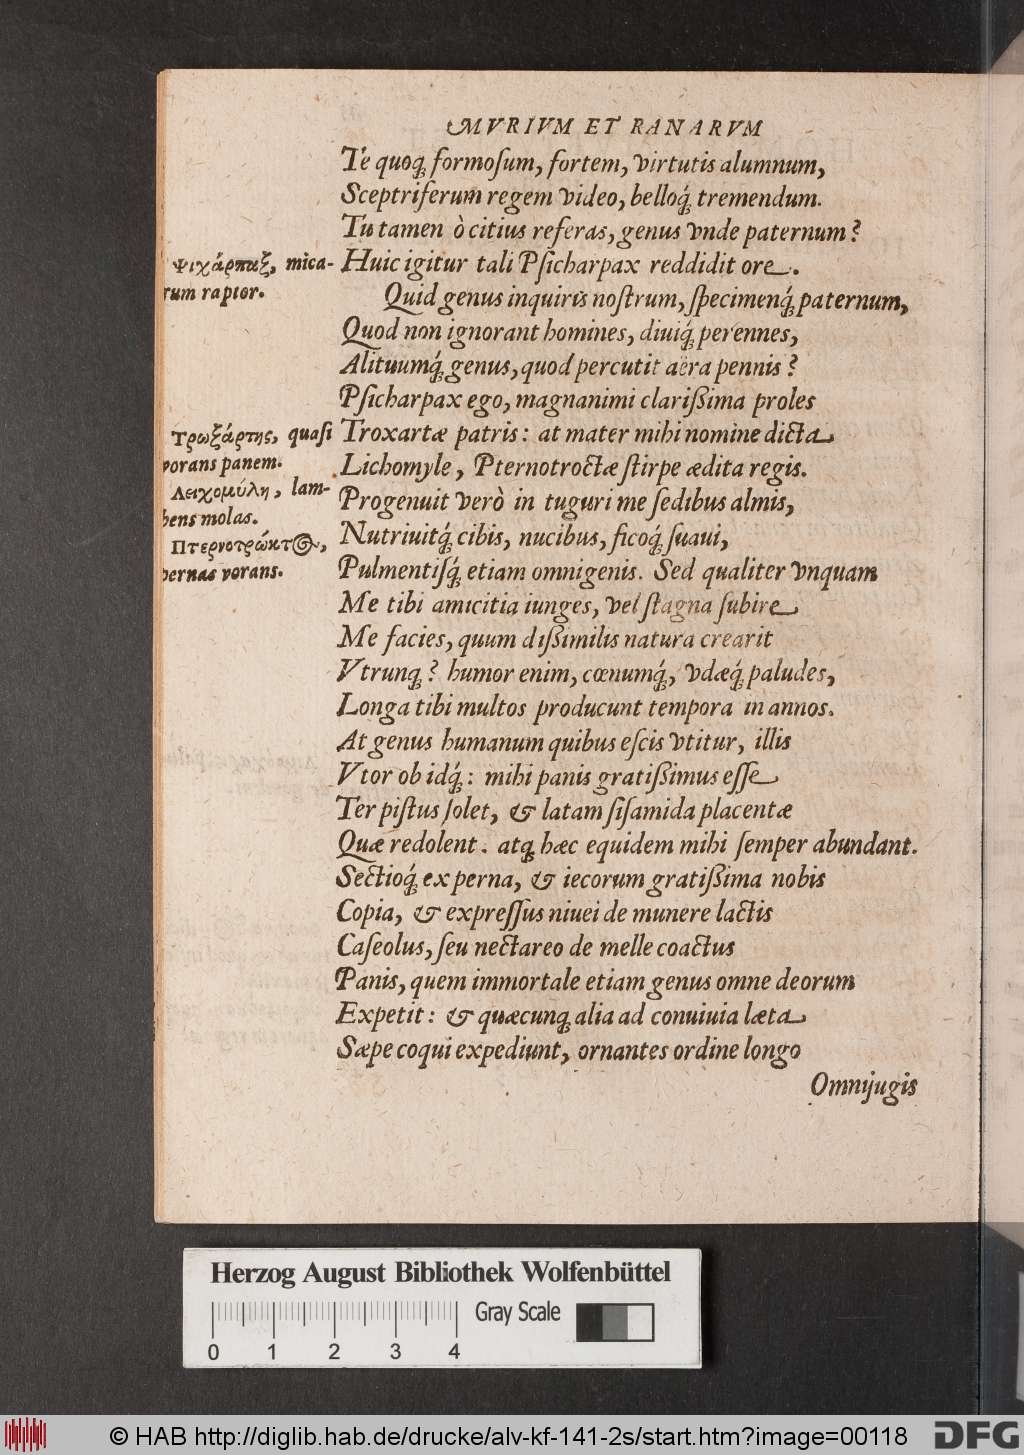 MVRIVM ET RANARVM
Te quoq́; formoſum, fortem, virtutis alumnum,
Sceptriferum regem video, belloq́; tremendum.
Tu tamen ò citius referas, genus vnde paternum?
Ψιχάρπαξ, mica-
rum raptor.
Huic igitur tali Pſicharpax reddidit ore.
Quid genus inquiris noſtrum, ſpecimenq́; paternum,
Quod non ignorant homines, diuiq́; perennes,
Alituumq́; genus, quod percutit aëra pennis?
Pſicharpax ego, magnanimi clariſsima proles
Τρωξάρτης, quaſi
vorans panem.
Λειχομύλη, lam-
bens molas.
Πτερνοτρώκτος,
pernas vorans.
Troxartæ patris: at mater mihi nomine dicta
Lichomyle, Pternotroctæ ſtirpe ædita regis.
Progenuit verò in tuguri me ſedibus almis,
Nutriuitq́; cibis, nucibus, ficoq́; ſuaui,
Pulmentiſq́; etiam omnigenis. Sed qualiter vnquam
Me tibi amicitia iunges, vel ſtagna ſubire
Me facies, quum diſsimilis natura crearit
Vtrunq;? humor enim, cœnumq́;, vdæq́; paludes,
Longa tibi multos producunt tempora in annos.
At genus humanum quibus eſcis vtitur, illis
Vtor ob idq́;: mihi panis gratiſsimus eſſe
Ter piſtus ſolet, & latam ſiſamida placentæ
Quæ redolent. atq; hæc equidem mihi ſemper abundant.
Sectioq́; ex perna, & iecorum gratiſsima nobis
Copia, & expreſſus niuei de munere lactis
Caſeolus, ſeu nectareo de melle coactus
Panis, quem immortale etiam genus omne deorum
Expetit: & quæcunq; alia ad conuiuia læta
Sæpe coqui expediunt, ornantes ordine longo
Omnijugis
Herzog August Bibliothek Wolfenbüttel
Gray Scale
0 1 2 3 4
© HAB http://diglib.hab.de/drucke/alv-kf-141-2s/start.htm?image=00118
DFG